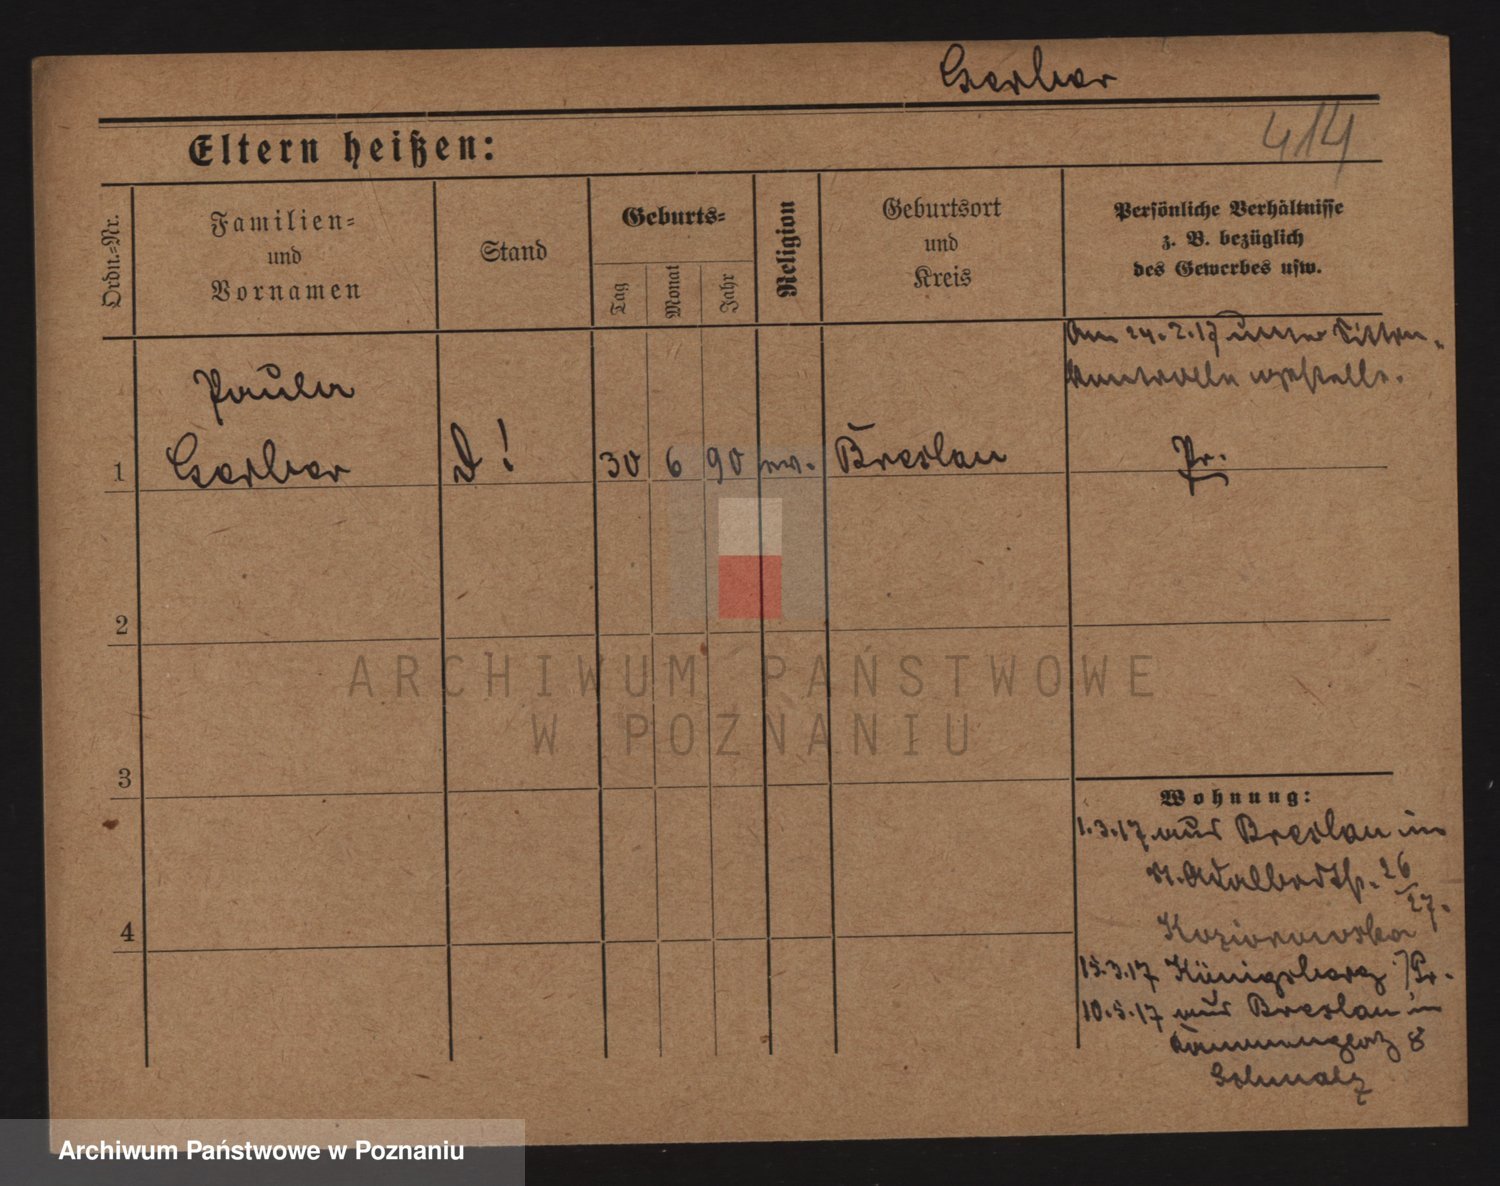 Gerber
414
Eltern heißen:
Ordn.-Nr.
Familien-
und
Vornamen
Stand
Geburts-
Tag
Monat
Jahr
Religion
Geburtsort
und
Kreis
Persönliche Verhältnisse
z. B. bezüglich
des Gewerbes usw.
Am 24.2.17 unter Sitten-
kontrolle gestellt.
Paula
1 Gerber D! 30 6 90 ev. Breslau Pr.
2
3
4
Wohnung:
1.3.17 aus Breslau in
Adalbertstr. 26/27.
15.3.17 Königsberg i/Pr.
10.5.17 aus Breslau in
8
Schmalz
ARCHIWUM PAŃSTWOWE
W POZNANIU
Archiwum Państwowe w Poznaniu